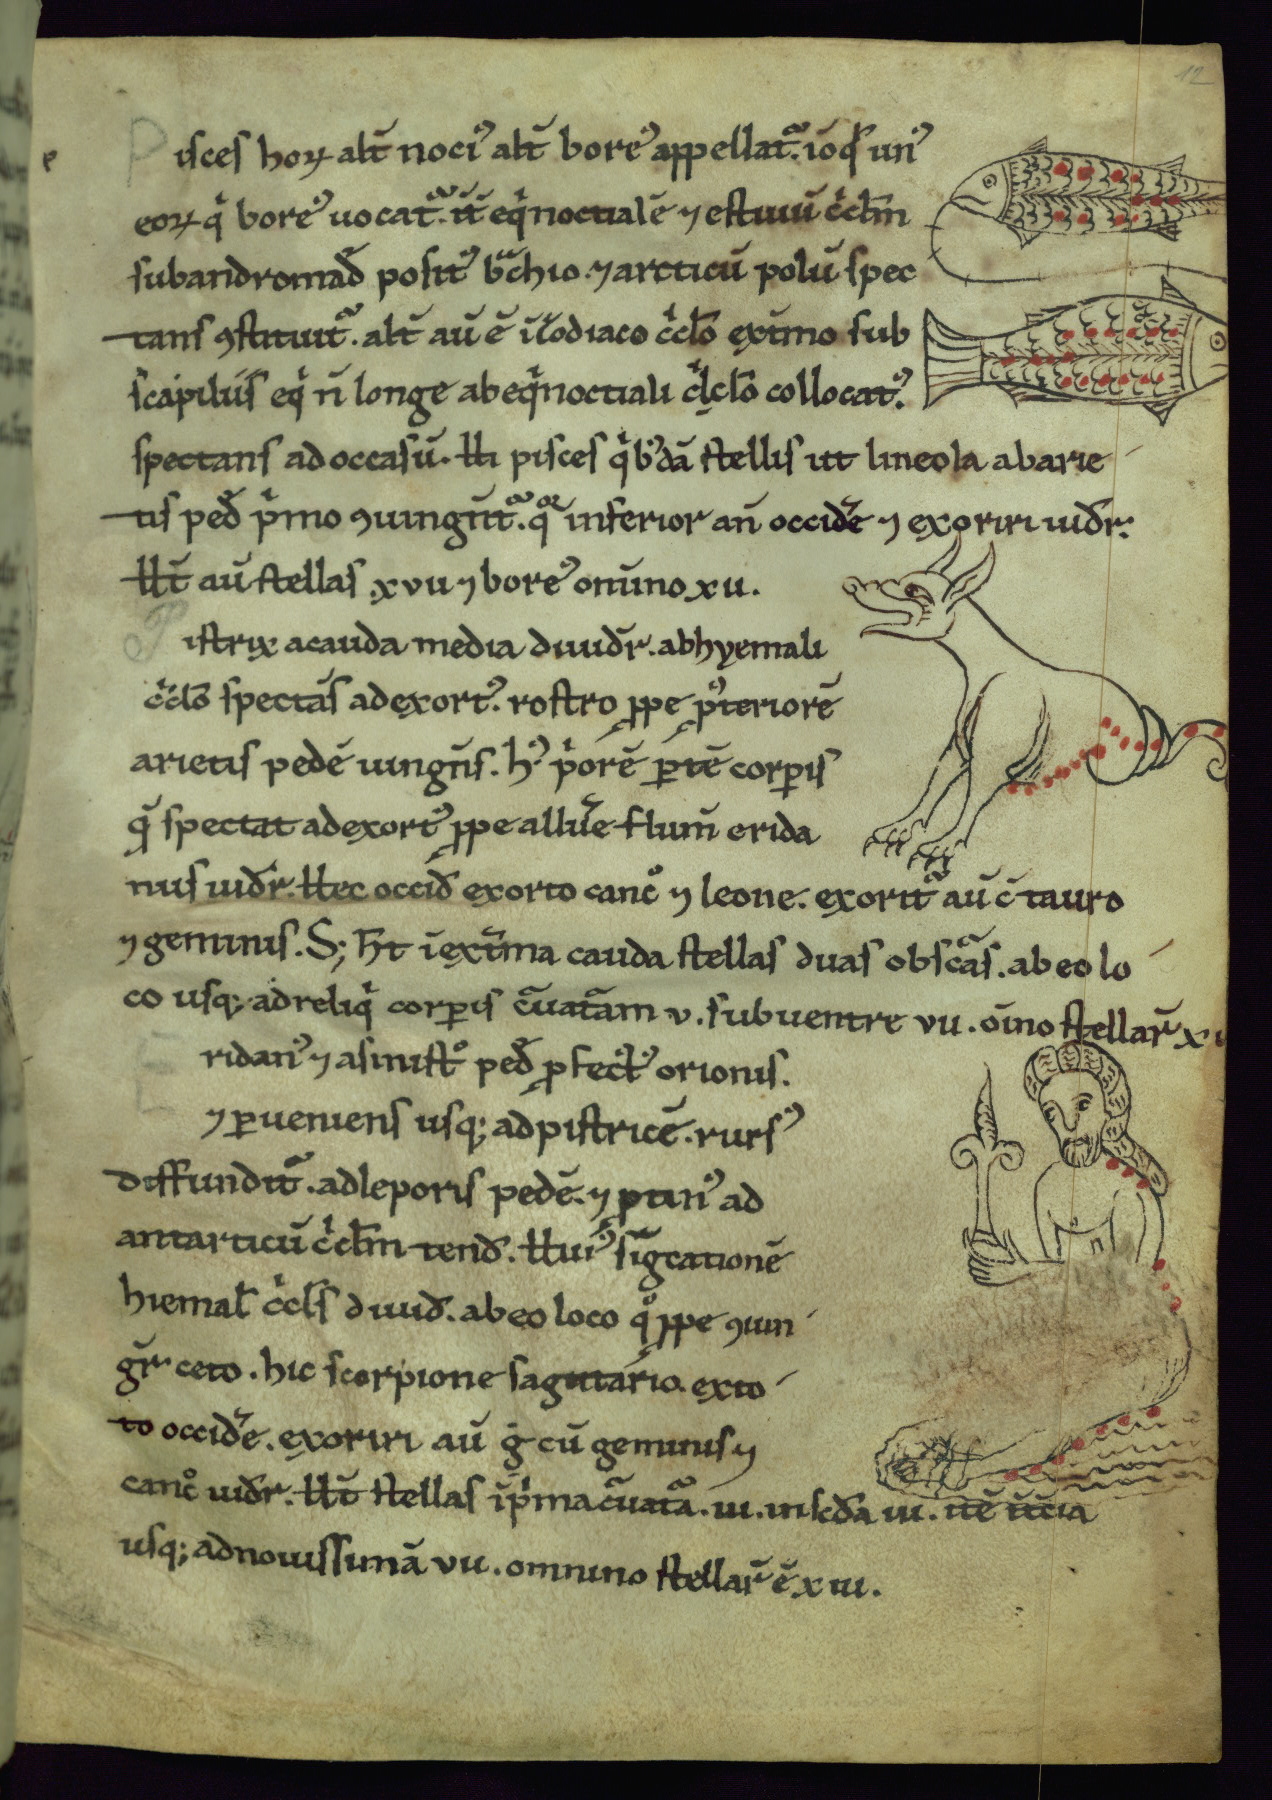 12
Pisces hoꝝ alt̄ noci᷒ alt̄ bore᷒ appellat᷑. iōq̄ un᷒
eoꝝ qͥ bore᷒ uocat᷑. ÷ īt̄ eqͥnoctialē ⁊ estiuū cͥcl̄m
subandromad̄ posit᷒ b̄chio. ⁊ arcticū polū spec
tans ꝯstituit᷑. alt̄ aū ē ī zodiaco cͥcl̄o ext̄mo sub
scapiliis eqͥ n̄ longe ab eqͥnoctiali cͥclo collocat᷒.
spectans ad occasū. Hi pisces qͥb᷒dā stellis ut lineola ab arie
tis ped̄ pͥmo ꝯiungūt᷑. qͦꝝ inferior an̄ occid̄e ⁊ exoriri uid̄r.
Ht̄ aū stellas .xvii ⁊ bore᷒ om̄ino xii.
Pistrix a cauda media diuid̄r. ab hyemali
cͥclo spectās ad exort᷒. rostro ꝓpe p᷒teriorē
arietis pedē iungn̄s. h᷒ pͥorē ꝑtē corꝑis
q̄ spectat ad exort᷒ ꝓpe alluēe flum̄ erida
nus uid̄r. Hec occid̄ exorto canc̄o ⁊ leone. exorit᷑ aū c̄ tauro
⁊ geminis. S; Ht ī ext̄ma cauda stellas duas obscͣas. ab eo lo
co usq; ad reliqͥ corꝑis cͣuatͣam v. sub uentre vii. oīno stellaꝝ x
Eridan᷒ ⁊ a sinistͦ ped̄ ꝓfect᷒ orionis.
⁊ ꝑueniens usq; ad pistricē. rurs᷒
diffundit᷑. ad leporis pedē. ⁊ ꝓtin᷒ ad
antarticū cͥcl̄m tend̄. Hui᷒ sīgcationē
hiemal̄ cͥcl̄s diuid̄. ab eo loco qͦ ꝓpe ꝯiun
gr̄ ceto. hic scorpione sagittario. exto
to occid̄e. exoriri aū g̊ cū geminis ⁊
canc̊ uid̄r. Ht̄ stellas ī pͥma cͣuatͣa. iii. in scd̄a iii. itē īt̄cia
usq; ad nouissimā vii. omnino stellaꝝ ē xiii.